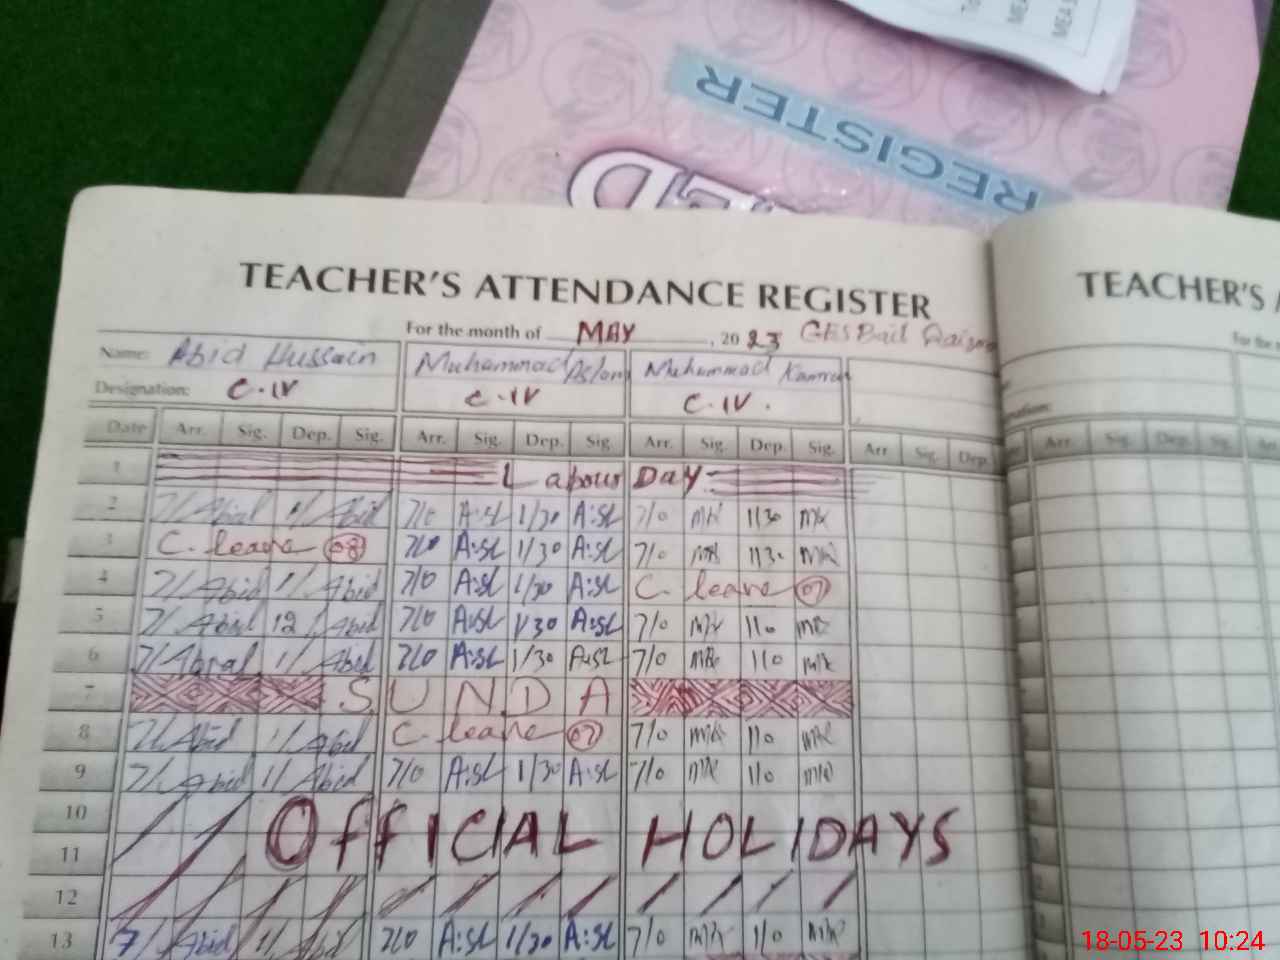 REGISTER
TEACHER'S ATTENDANCE REGISTER
TEACHER'S
For the month of MAY, 2023 GES Bail
Name: Abid Hussain Muhammad Aslam Muhammad Kamran
Designation: C-IV C-IV C-IV.
Date Arr. Sig. Dep. Sig. Arr. Sig. Dep. Sig. Arr. Sig. Dep. Sig. Arr. Sig. Dep. Arr. Sig. Dep. Sig.
1 Labour DAY
2 7/ Abid 1/ Abid 7/0 A:SL 1/30 A:SL 7/0 1/30
3 C. leave 08 7/0 A:SL 1/30 A:SL 7/0 1/30
4 7/ Abid 1/ Abid 7/0 A:SL 1/30 A:SL C. leave 07
5 7/ Abid 12/ Abid 7/0 A:SL 1/30 A:SL 7/0 1/0
6 7/ 1/ Abid 7/0 A:SL 1/30 A:SL 7/0 1/0
7 S U N D A
8 7/ Abid 1/ Abid C. leave 07 7/0 1/0
9 7/ Abid 1/ Abid 7/0 A:SL 1/30 A:SL 7/0 1/0
10
OFFICIAL HOLIDAYS
11
12
13 7/ Abid 1/ Abid 7/0 A:SL 1/30 A:SL 7/0 1/0
18-05-23 10:24